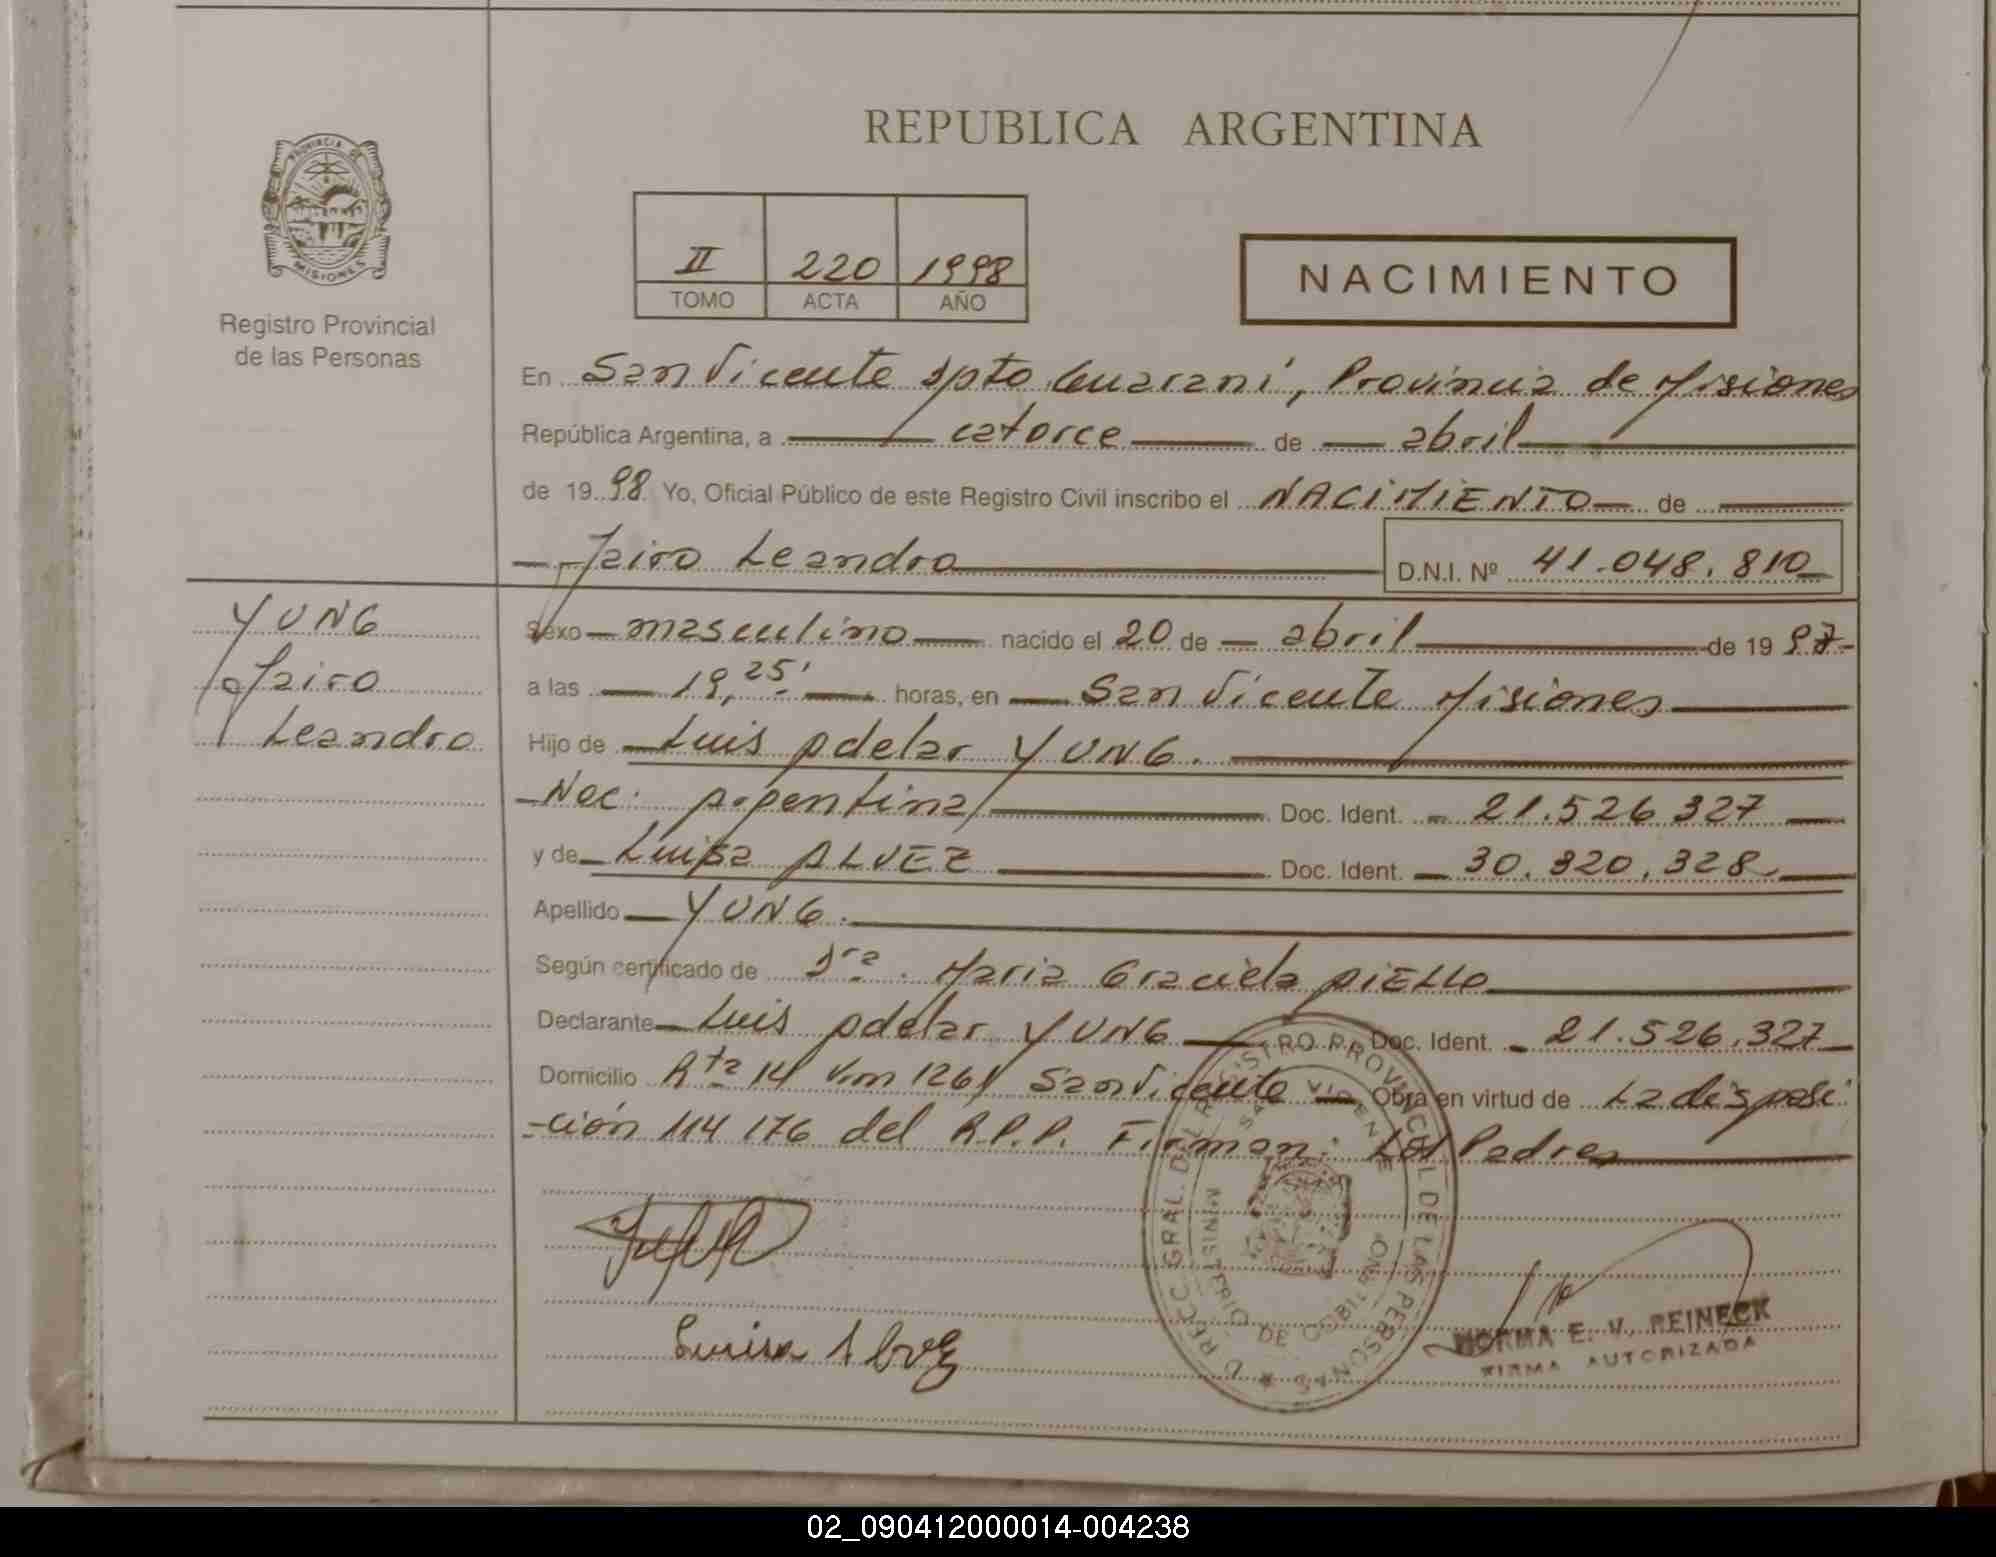 REPUBLICA ARGENTINA
PROVINCIA DE
MISIONES
Registro Provincial
de las Personas
II 220 1998
TOMO ACTA AÑO
NACIMIENTO
En San Vicente Dpto Guarani, Provincia de Misiones
República Argentina, a catorce de abril
de 1998 Yo, Oficial Público de este Registro Civil inscribo el NACIMIENTO de
Jairo Leandro D.N.I. Nº 41.048.810
YUNG
Jairo
Leandro
Sexo masculino nacido el 20 de abril de 1997
a las 19,25' horas, en San Vicente Misiones
Hijo de Luis Adelar YUNG.
Nac. Argentina Doc. Ident. 21.526.327
y de Luisa ALVEZ Doc. Ident. 30.320.328
Apellido YUNG.
Según certificado de Dra. Maria Graciela AIELLO
Declarante Luis Adelar YUNG Doc. Ident. 21.526.327
Domicilio Rta 14 Km 1261 San Vicente Obra en virtud de La disposi
-ción 114 176 del R.P.P. Firman: Los Padres
REGISTRO PROVINCIAL DE LAS PERSONAS
SAN VICENTE
MINISTERIO DE GOBIERNO
Luisa Alvez
NORMA E. V. REINECK
FIRMA AUTORIZADA
02_090412000014-004238